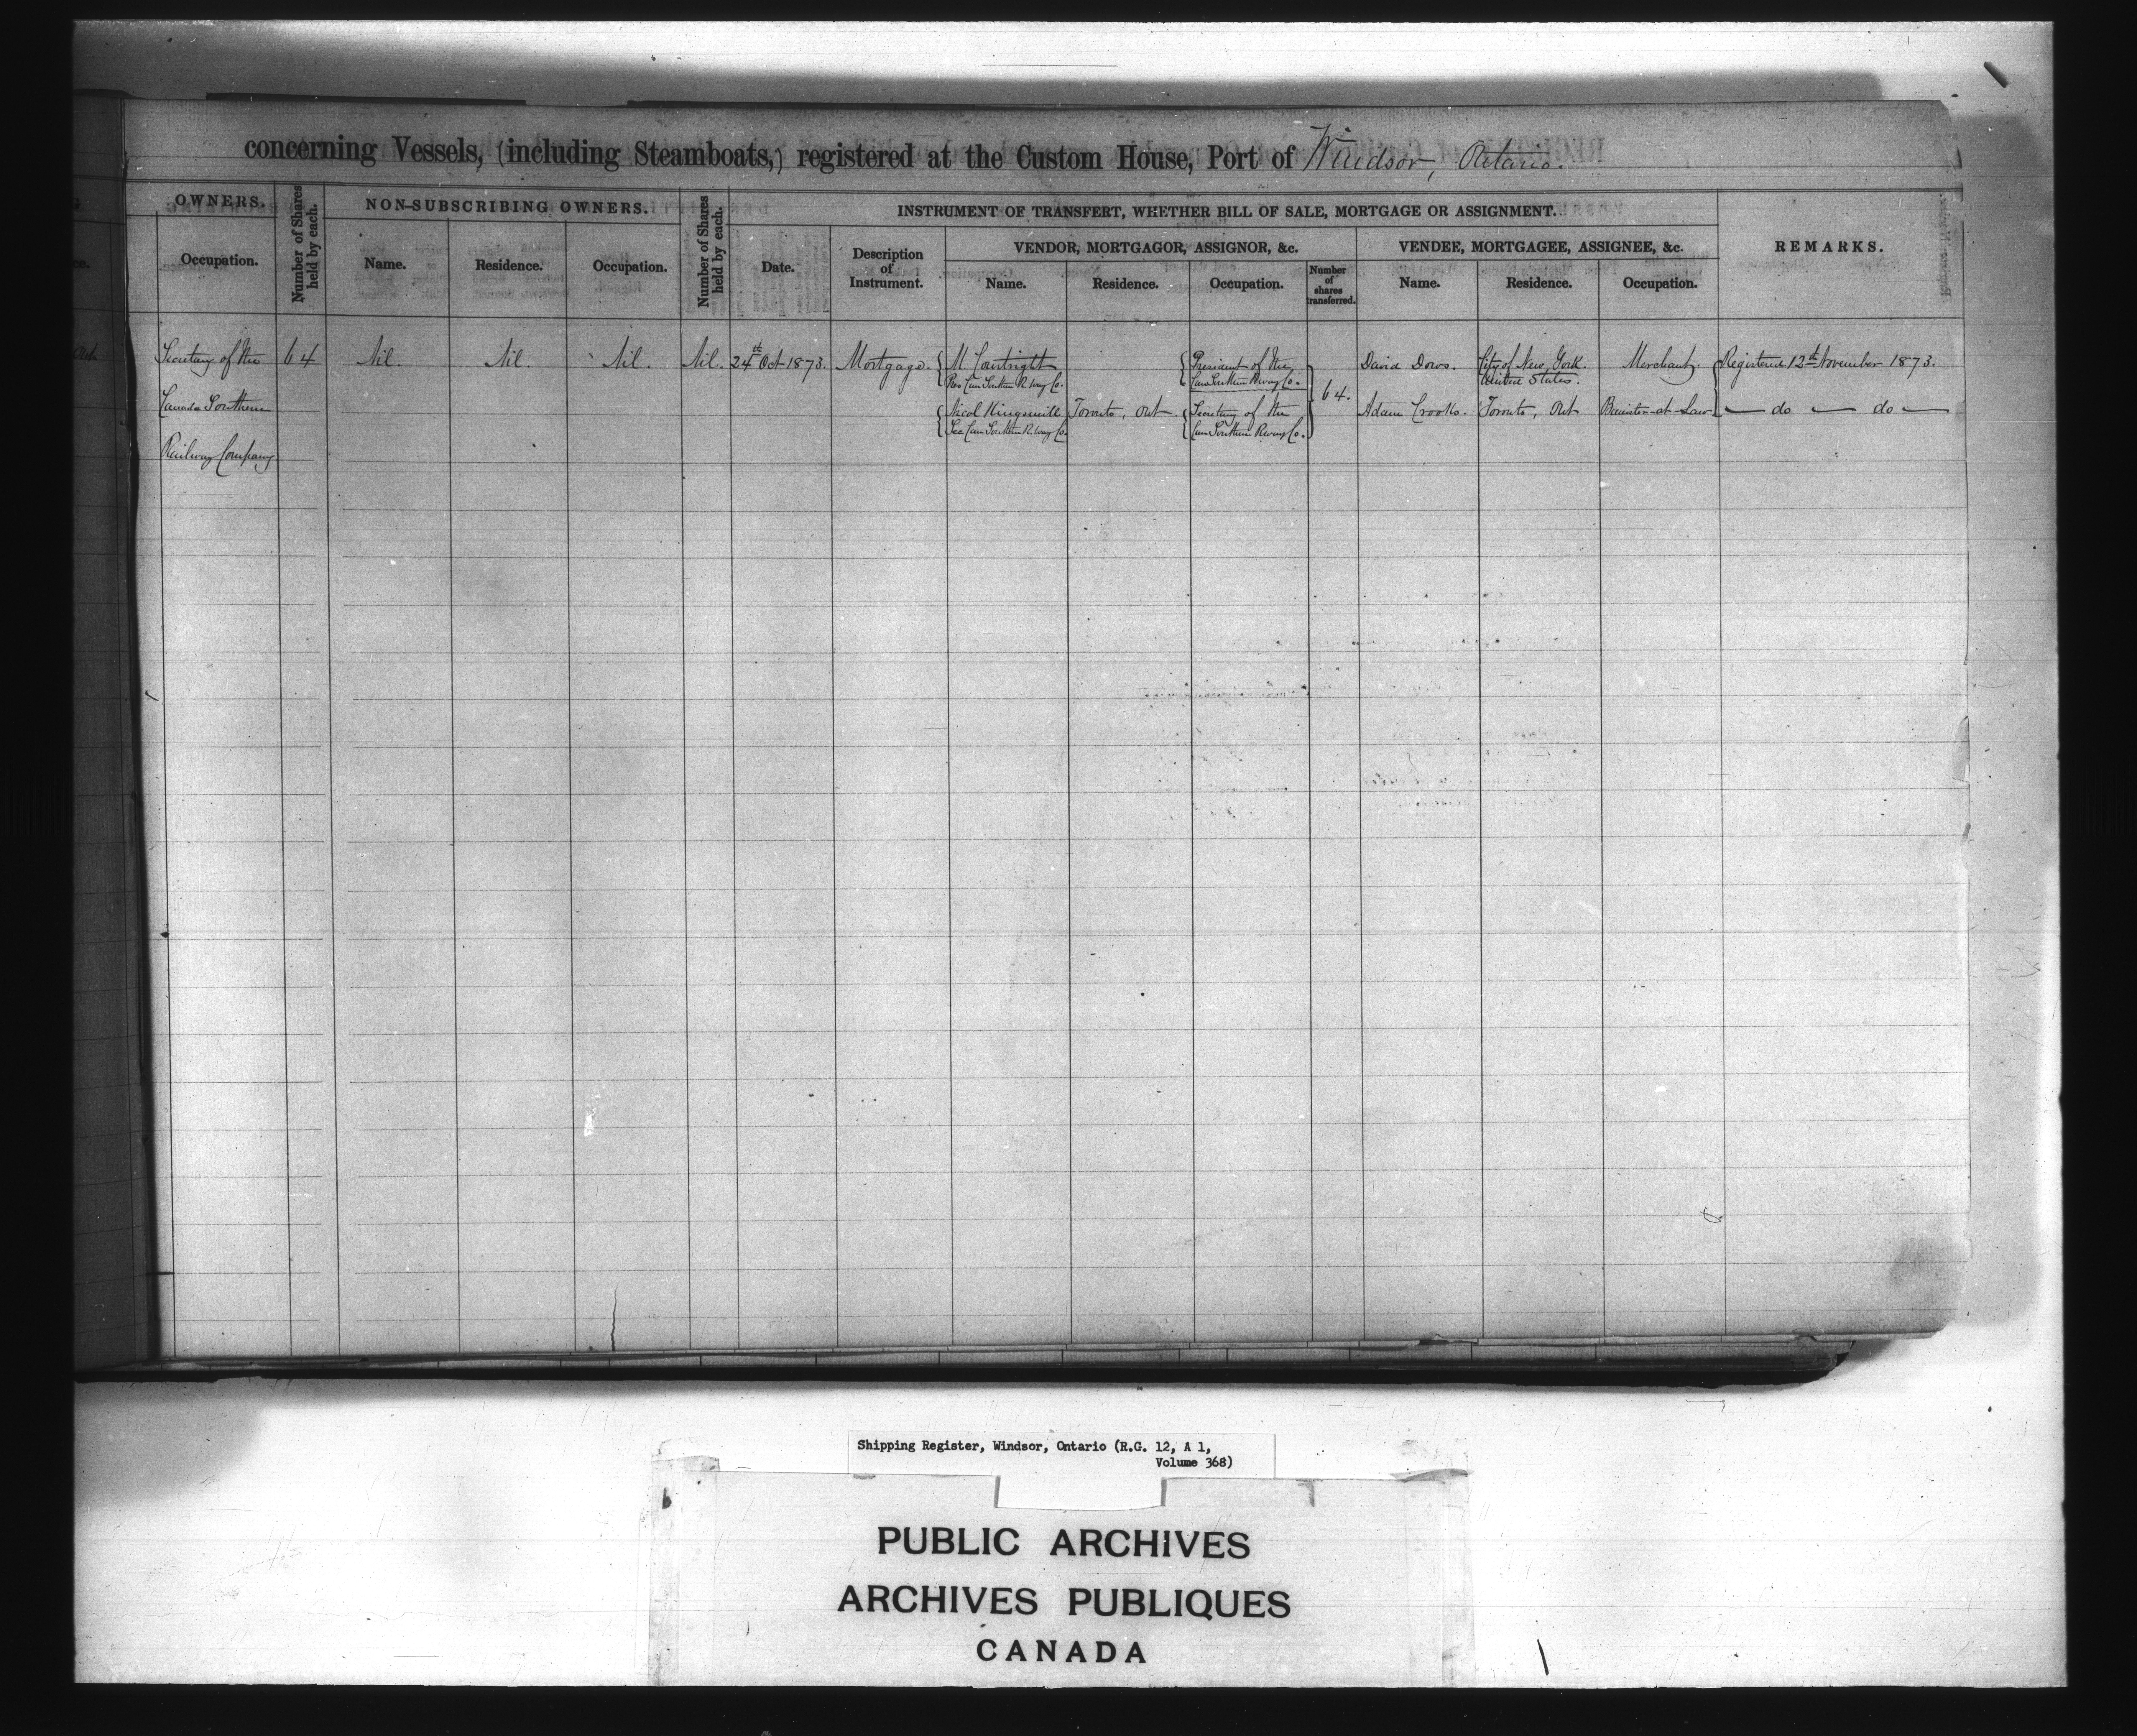 concerning Vessels, (including Steamboats,) registered at the Custom House, Port of Windsor, Ontario.
OWNERS.
Number of Shares held by each.
NON-SUBSCRIBING OWNERS.
Number of Shares held by each.
INSTRUMENT OF TRANSFERT, WHETHER BILL OF SALE, MORTGAGE OR ASSIGNMENT.
REMARKS.
Occupation.
Name.
Residence.
Occupation.
Date.
Description
of
Instrument.
VENDOR, MORTGAGOR, ASSIGNOR, &c.
VENDEE, MORTGAGEE, ASSIGNEE, &c.
Name.
Residence.
Occupation.
Number
of
shares
transferred.
Name.
Residence.
Occupation.
Secretary of the
Canada Southern
Railway Company
64
Nil.
Nil.
Nil.
Nil.
24th Oct 1873.
Mortgage.
M. Courtright
Pres Can Southern R. way Co.
Nicol Kingsmill
Sec Can Southern R. way Co.
Toronto, Ont.
President of the
Can Southern Rway Co.
Secretary of the
Can Southern Rway Co.
64.
David Dows.
Adam Crooks.
City of New York.
United States.
Toronto, Ont
Merchant.
Barrister-at-Law
Registered 12th November 1873.
— do — do —
Shipping Register, Windsor, Ontario (R.G. 12, A 1,
Volume 368)
PUBLIC ARCHIVES
ARCHIVES PUBLIQUES
CANADA